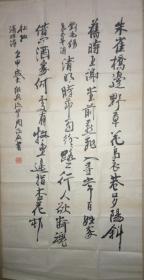 朱雀橋邊野草花烏衣巷口夕陽斜
舊時王謝堂前燕飛入尋常百姓家
劉禹錫
清明時節雨紛紛路上行人欲斷魂
借問酒家何處有牧童遥指杏花村
杜牧
清明詩
壬申
書